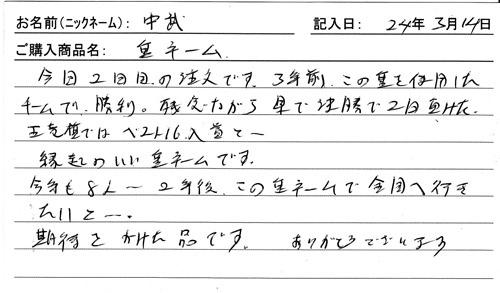 お名前(ニックネーム): 中武 記入日: 24年3月14日
ご購入商品名: 墨ネーム.
今回2回目の注文です。3年前、この墨を使用した
チームで、勝利。残念ながら 県で決勝で2回負けた.
玉竜旗では ベスト16入賞と一
縁起のいい 墨ネームです.
今年も 8人〜 2年後、この墨ネームで 全国へ行き
たいと一.
期待を かけた 品です. ありがとうございます